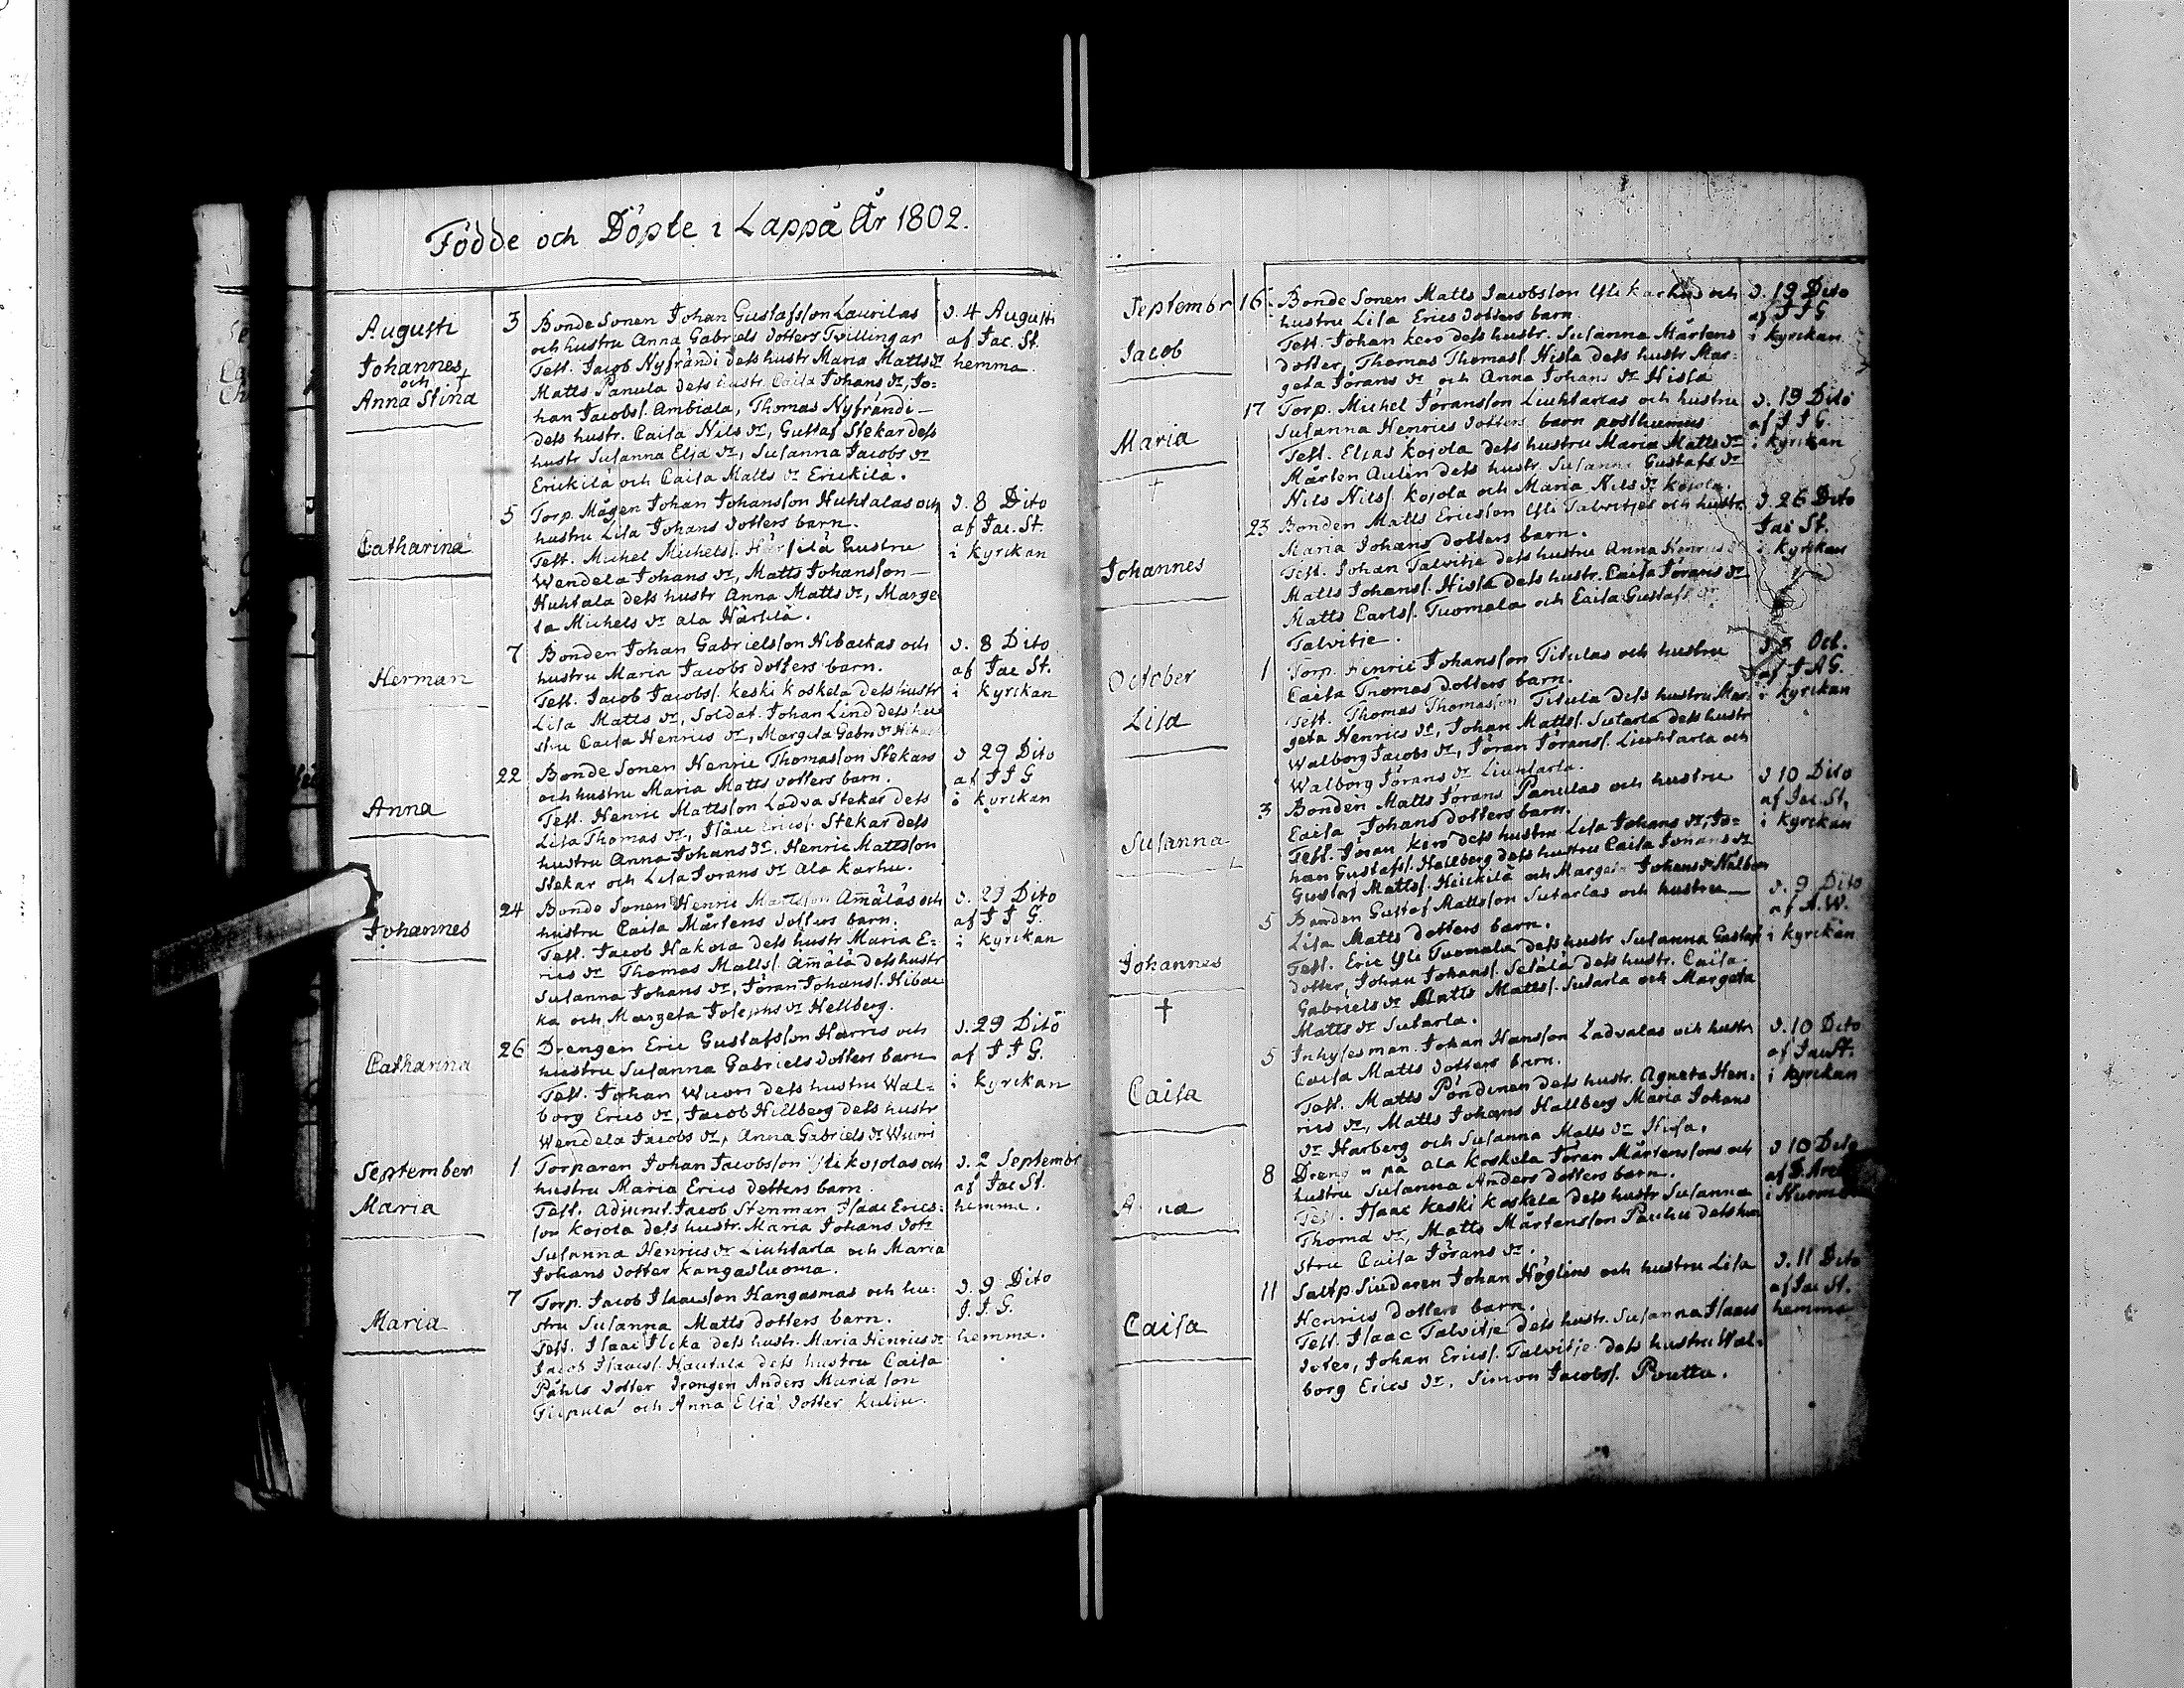 Födde och Döpte i Lappå År 1802.
Augusti
Johannes
och
Anna Stina
3
Bonde Sonen Johan Gustafsson Laurilas
och hustru Anna Gabriels dotters Tvillingar
Test. Jacob Nyfrändi dess hustr Maria Matts dr
Matts Panula dess hustr. Caisa Johans dr, Jo-
han Jacobss. Ambiala, Thomas Nyfrändi —
dess hustr. Caisa Nils dr, Gustaf Stekar dess
hustr Susanna Elja dr, Susanna Jacobs dr
Erickilä och Caisa Matts dr Erickilä.
d. 4 Augusti
af Jac. St.
hemma.
Catharina
5
Torp. Mågen Johan Johansson Huhtalas och
hustru Lisa Johans dotters barn.
Test. Michel Michelss. Härsilä hustru
Wendela Johans dr, Matts Johansson —
Huhtala dess hustr Anna Matts dr, Marge
ta Michels dr Ala Härsilä.
d. 8 Dito
af Jac. St.
i kyrckan
Herman
7
Bonden Johan Gabrielsson Hibackas och
hustru Maria Jacobs dotters barn.
Test. Jacob Jacobss. Keski Koskela dess hustr
Lisa Matts dr, Soldat. Johan Lind dess hu
stru Caisa Henrics dr, Margeta Gabr. dr
d. 8 Dito
af Jac St.
i kyrckan
Anna
22
Bonde Sonen Henric Thomasson Stekars
och hustru Maria Matts dotters barn.
Test. Henric Mattsson Ladva Stekar dess
Lisa Thomas dr, Isaac Ericss. Stekar dess
hustru Anna Johans dr. Henric Mattsson
Stekar och Lisa Jörans dr Ala Karhu.
d 29 Dito
af J J G
i kyrckan
Johannes
24
Bonde Sonen Henric Mattsson Amäläs och
hustru Caisa Mårtens dotters barn.
Test. Jacob Hakola dess hustr Maria E-
rics dr Thomas Mattss. Amälä dess hustr
Susanna Johans dr, Jöran Johanss. Hibac
ka och Margeta Josephs dr Hellberg.
d. 29 Dito
af J J G.
i kyrckan
Catharina
26
Drengen Eric Gustafsson Harris och
hustru Susanna Gabriels dotters barn
Test. Johan Wuori dess hustru Wal-
borg Erics dr, Jacob Hellberg dess hustr
Wendela Jacobs dr, Anna Gabriels dr Wuori
d. 29 Dito
af J J G.
i kyrckan
September
Maria
1
Torparen Johan Jacobsson Yli kojolas och
hustru Maria Erics dotters barn
Test. Adjunct. Jacob Stenman Isaac Erics-
son kojola dess hustr. Maria Johans dotr
Susanna Henrics dr Liuhtarla och Maria
Johans dotter kangasluoma.
d. 2 Septembr
af Jac St.
hemma.
Maria
7
Torp. Jacob Isaacsson Hangasmas och hu-
stru Susanna Matts dotters barn.
Test. Isaac Ilcka dess hustr. Maria Henrics dr
Jacob Isaacss. Hautala dess hustru Caisa
Påhls dotter Drengen Anders Mariasson
Tiipula och Anna Elja dotter kuliu.
d. 9 Dito
J. J G.
hemma.
Septembr
Jacob
16
Bonde Sonen Matts Jacobsson Yli karhus och
hustru Lisa Erics dotters barn.
Test. Johan kero dess hustr. Susanna Mårtens
dotter, Thomas Thomass. Hissa dess hustr Mar-
geta Jörans dr och Anna Johans dr Hissa
d. 19 Dito
af J J G
i kyrckan
Maria
17
Torp. Michel Jöransson Liuhtarlas och hustru
Susanna Henrics dotters barn posthumus
Test. Elias kojola dess hustru Maria Matts dr
Mårten Aulin dess hustr. Susanna Gustafs dr
Nils Nilss. kojola och Maria Nils dr kojola.
d. 19 Dito
af J J G.
i kyrckan
Johannes
23
Bonden Matts Ericsson Yli Talvitjes och hustr.
Maria Johans dotters barn.
Test. Johan Talvitje dess hustru Anna Henrics dr
Matts Johanss. Hissa dess hustr. Caisa Jörans dr
Matts Carlss. Tuomala och Caisa Gustafs dr
Talvitje.
d. 26 Dito
Jac St.
i kyrckan
October
Lisa
1
Torp. Henric Johansson Titulas och hustru
Caisa Thomas dotters barn.
Test. Thomas Thomasson Titula dess hustru Mar-
geta Henrics dr, Johan Mattss. Sutarla dess hustr
Walborg Jacobs dr, Jöran Jöranss. Liuhtarla och
Walborg Jörans dr Liuhtarla.
Oct.
af J J G.
i kyrckan
Susanna
3
Bonden Matts Jörans Panulas och hustru
Caisa Johans dotters barn.
Test. Jöran kero dess hustru Lisa Johans dr, Jo-
han Gustafss. Hallberg dess hustru Caisa Johans dr
Gustaf Mattss. Heickilä och Margeta Johans dr
d 10 Dito
af Jac. St.
i kyrckan
Johannes
5
Bonden Gustaf Mattsson Sutarlas och hustru —
Lisa Matts dotters barn.
Test. Eric Yli Tuomala dess hustr Susanna Gustafs
dotter, Johan Johanss. Selälä dess hustr. Caisa
Gabriels dr Matts Mattss. Sutarla och Margeta
Matts dr Sutarla.
d. 9 Dito
af A. W.
i kyrckan
Caisa
5
Inhysesman Johan Hansson Ladvalas och hustr
Caisa Matts dotters barn.
Test. Matts Pöndinen dess hustr. Agneta Hen-
rics dr, Matts Johans Hallberg Maria Johans
dr Harberg och Susanna Matts dr Hissa.
d. 10 Dito
af Jac St.
i kyrckan
8
på Ala koskela Jöran Mårtenssons och
hustru Susanna Anders dotters barn.
Test. Isaac keski koskela dess hustr Susanna
Thoma dr, Matts Mårtensson Pouhu dess hu
stru Caisa Jörans dr.
d 10 Dito
Caisa
11
Saltp Siudaren Johan Höglins och hustru Lisa
Henrics dotters barn.
Test. Isaac Talvitje dess hustr. Susanna Isaacs
doter, Johan Ericss. Talvitje dess hustru Wal-
borg Erics dr. Simon Jacobss. Pouttu.
d. 11 Dito
af Jac St.
hemma